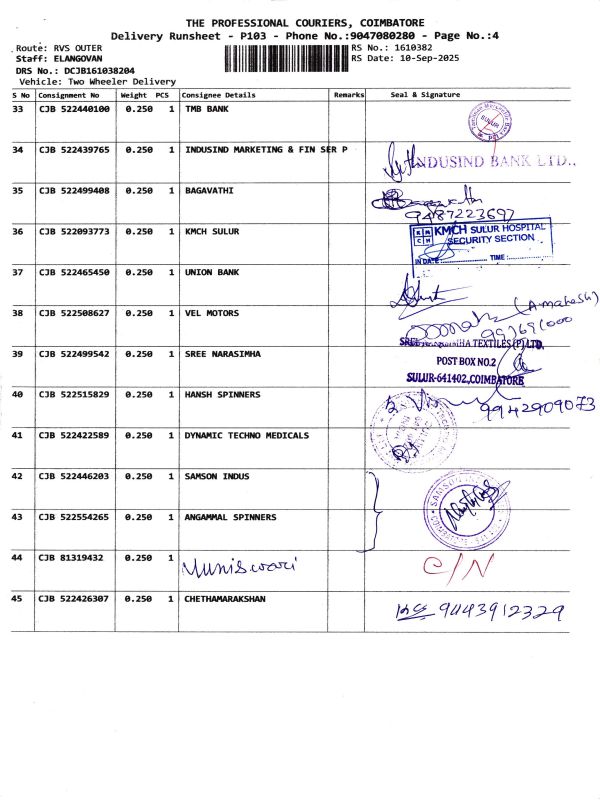 THE PROFESSIONAL COURIERS, COIMBATORE
Delivery Runsheet - P103 - Phone No.:9047080280 - Page No.:4
Route: RVS OUTER RS No.: 1610382
Staff: ELANGOVAN RS Date: 10-Sep-2025
DRS No.: DCJB161038204
Vehicle: Two Wheeler Delivery
S No Consignment No Weight PCS Consignee Details Remarks Seal & Signature
33 CJB 522440100 0.250 1 TMB BANK
SULUR
34 CJB 522439765 0.250 1 INDUSIND MARKETING & FIN SER P
INDUSIND BANK LTD.,
35 CJB 522499408 0.250 1 BAGAVATHI
9487223697
36 CJB 522093773 0.250 1 KMCH SULUR
KMCH SULUR HOSPITAL
SECURITY SECTION
IN DATE: TIME:
37 CJB 522465450 0.250 1 UNION BANK
38 CJB 522508627 0.250 1 VEL MOTORS
(A.mahesh)
39 CJB 522499542 0.250 1 SREE NARASIMHA
TEXTILES (P) LTD.
POST BOX NO.2
SULUR-641402, COIMBATORE
40 CJB 522515829 0.250 1 HANSH SPINNERS
9942909073
41 CJB 522422589 0.250 1 DYNAMIC TECHNO MEDICALS
42 CJB 522446203 0.250 1 SAMSON INDUS
43 CJB 522554265 0.250 1 ANGAMMAL SPINNERS
44 CJB 81319432 0.250 1 Muniswari
C/N
45 CJB 522426307 0.250 1 CHETHAMARAKSHAN
9443912329